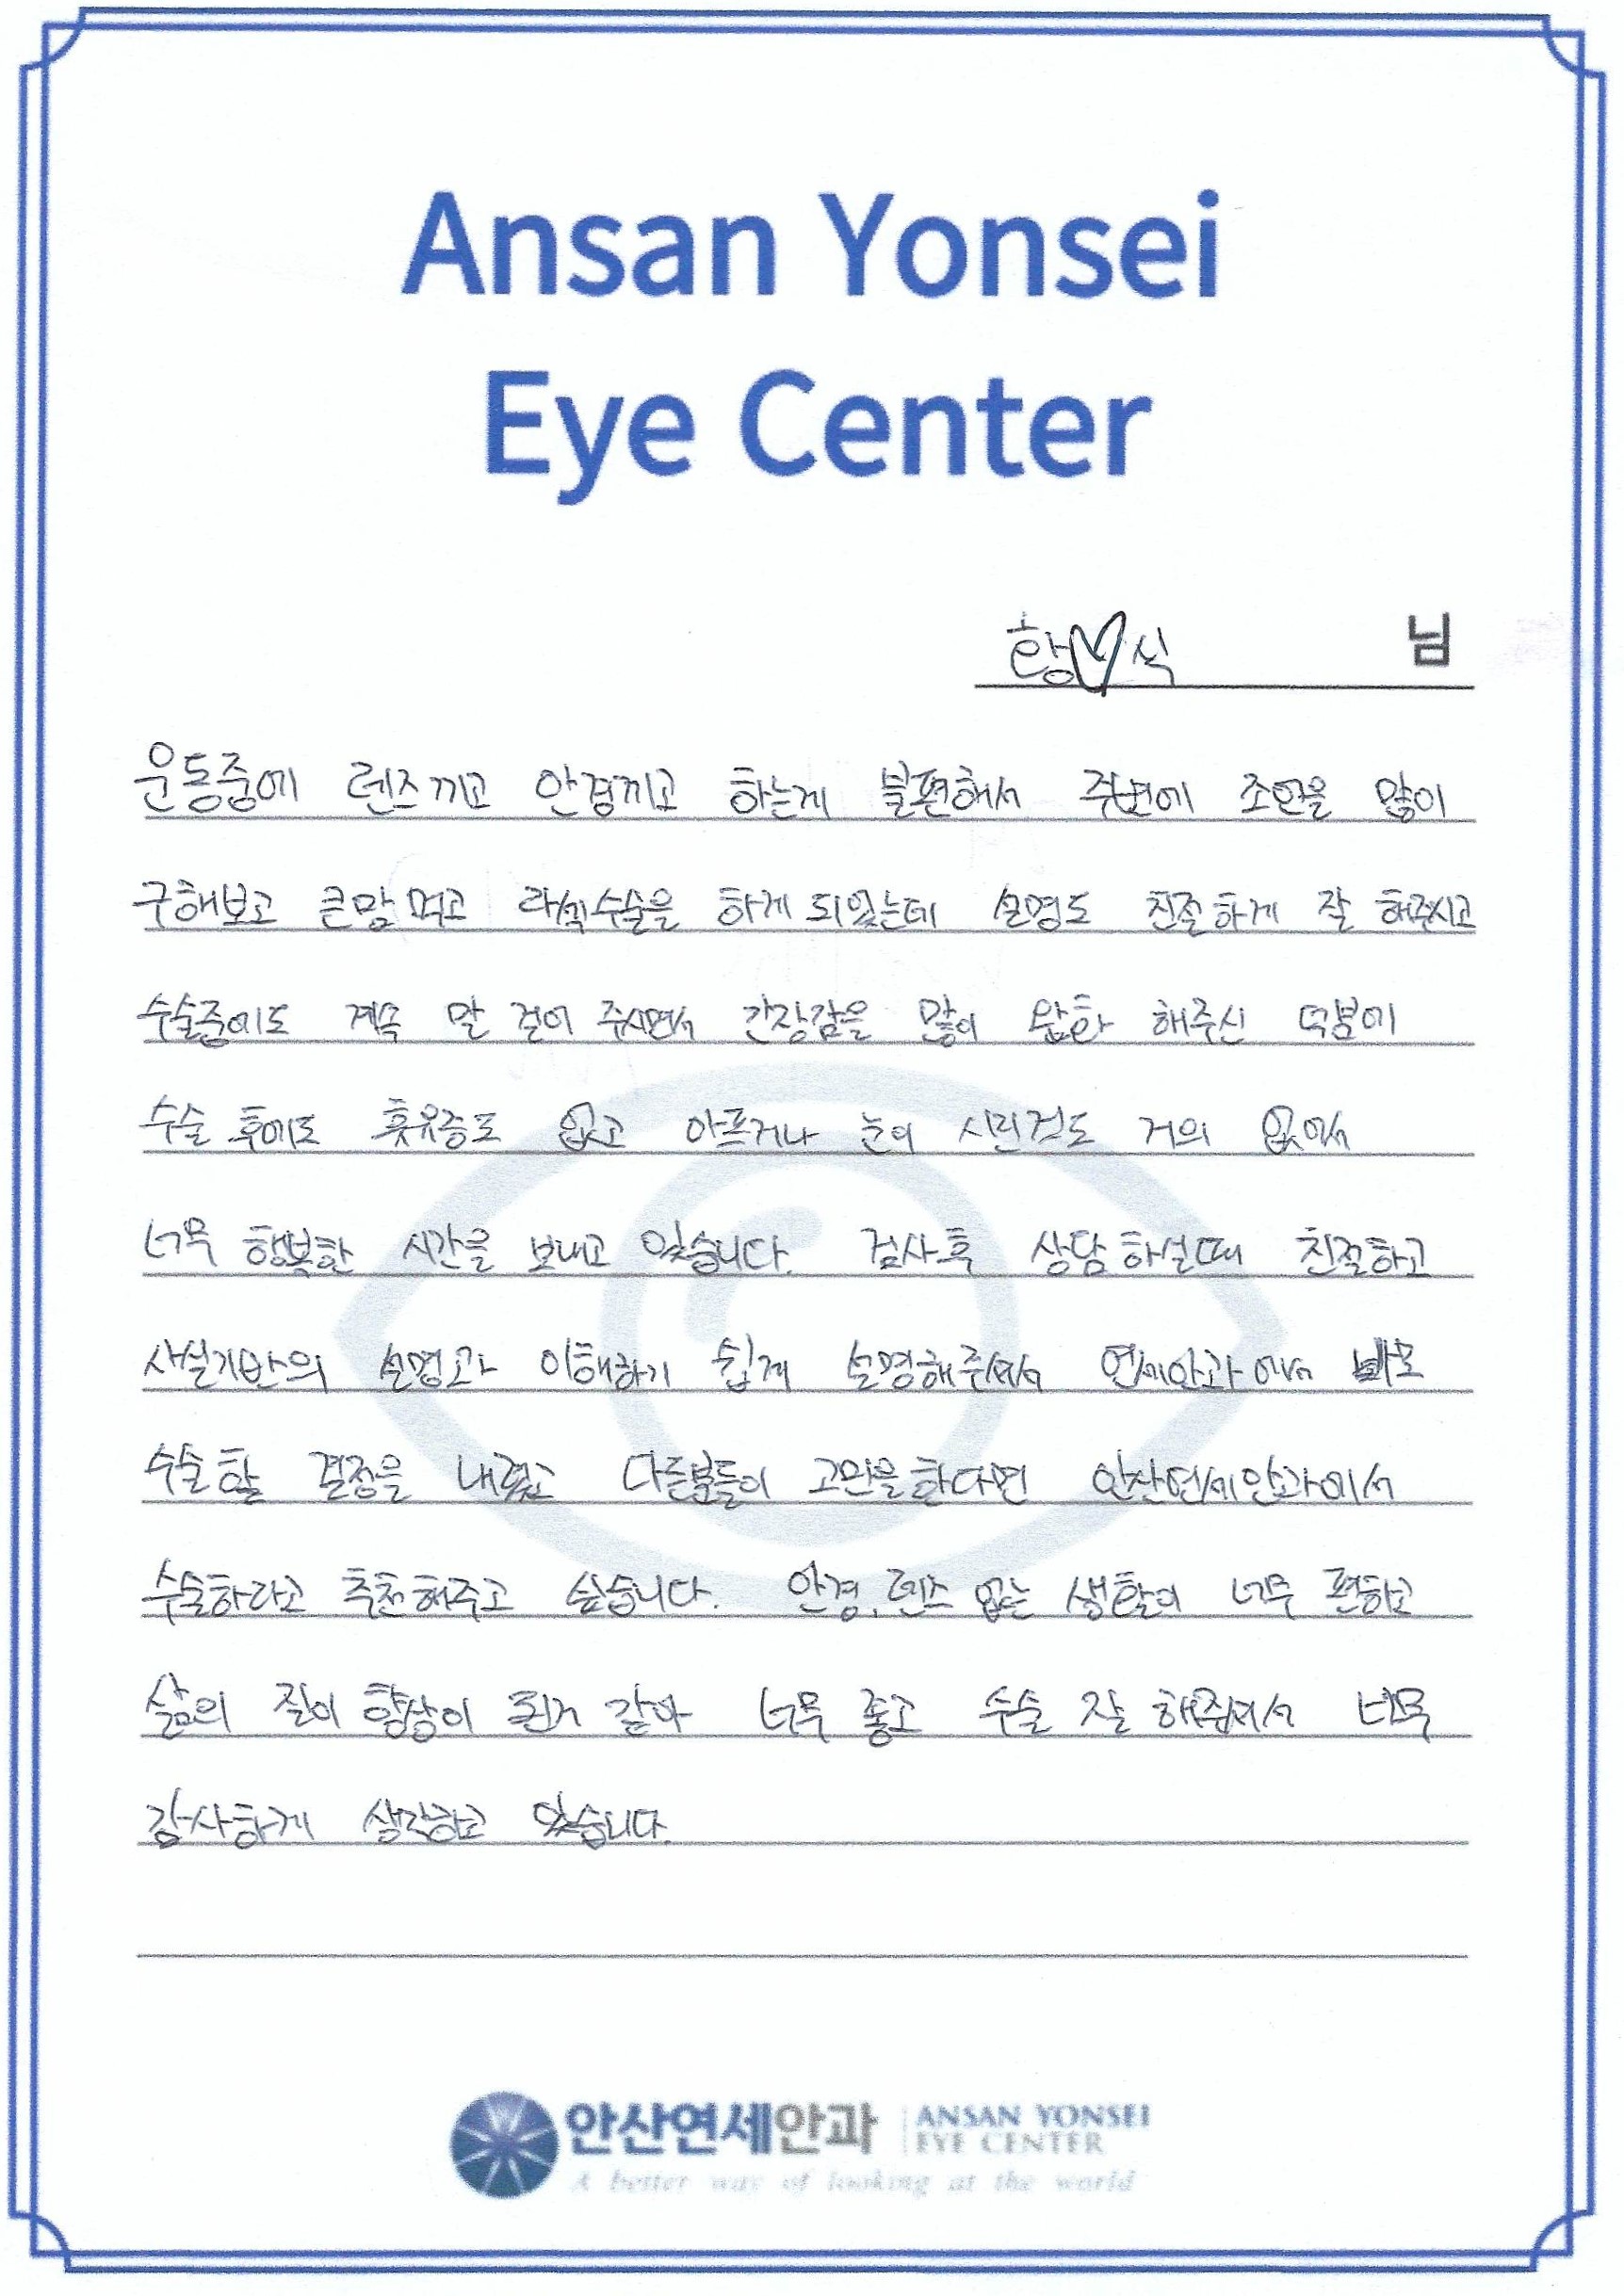 Ansan Yonsei
Eye Center
황♡식 님
운동중에 렌즈끼고 안경끼고 하는게 불편해서 주변에 조언을 많이
구해보고 큰맘먹고 라섹수술을 하게 되었는데 설명도 친절하게 잘 해주시고
수술중에도 계속 말 걸어 주시면서 긴장감을 많이 완화 해주신 덕분에
수술 후에도 휴유증도 없고 아프거나 눈이 시린것도 거의 없어서
너무 행복한 시간을 보내고 있습니다. 검사후 상담하실때 친절하고
사실기반의 설명과 이해하기 쉽게 설명해주셔서 연세안과에서 바로
수술할 결정을 내렸고 다른분들이 고민을한다면 안산연세안과에서
수술하라고 추천해주고 싶습니다. 안경, 렌즈 없는 생활이 너무 편하고
삶의 질이 향상이 된거 같아 너무 좋고 수술 잘 해주셔서 너무
감사하게 생각하고 있습니다.
안산연세안과 ANSAN YONSEI
EYE CENTER
A better way of looking at the world